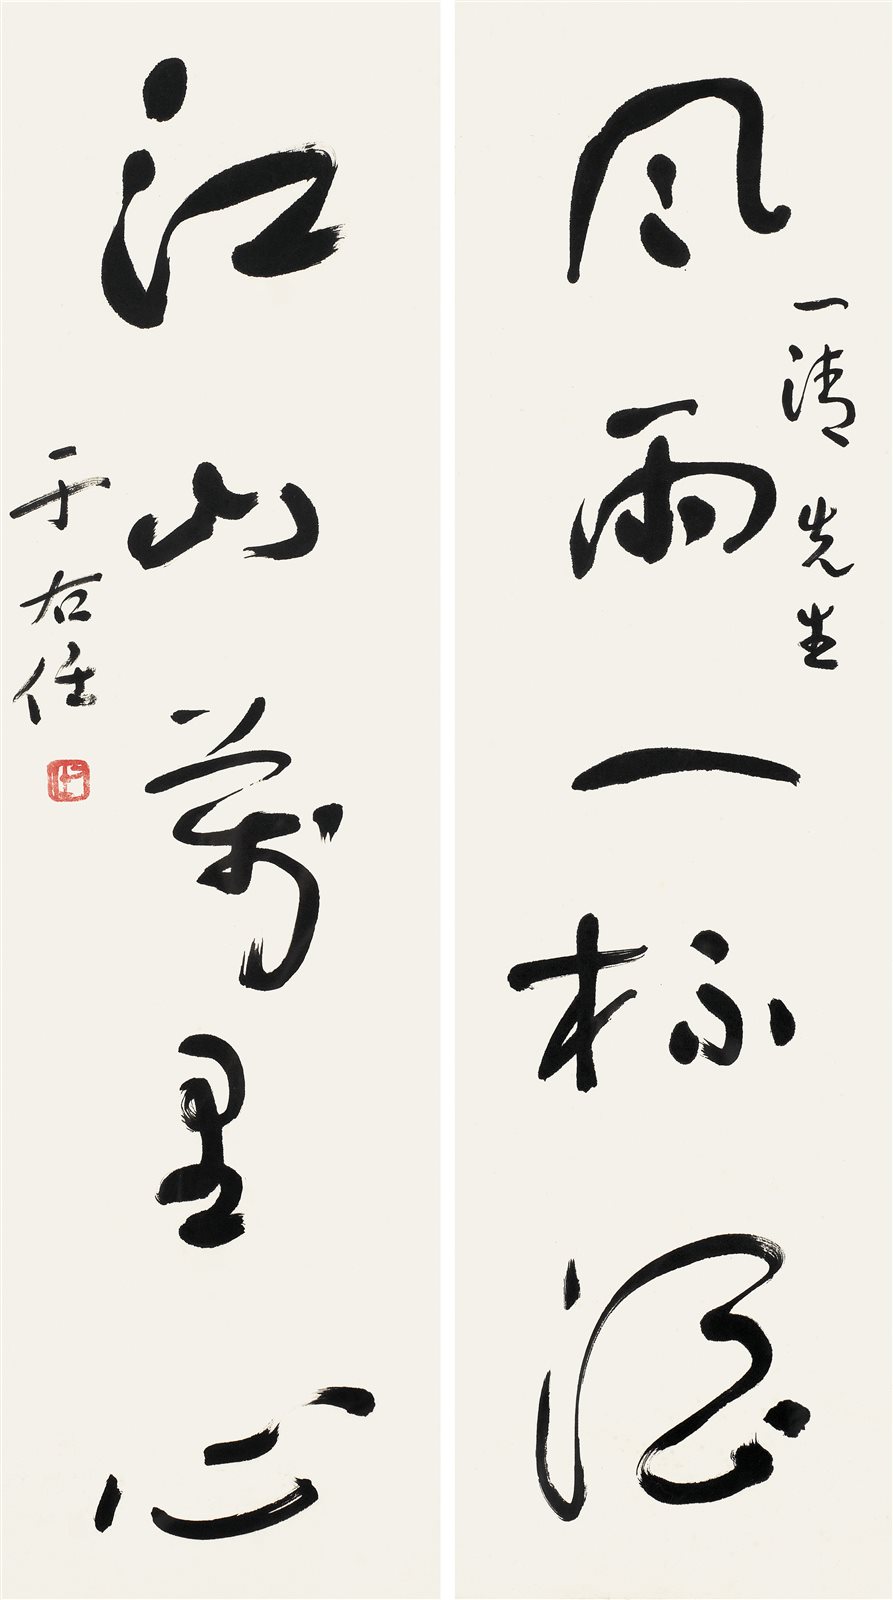 風雨一杯酒
一清先生
江山萬里心
于右任